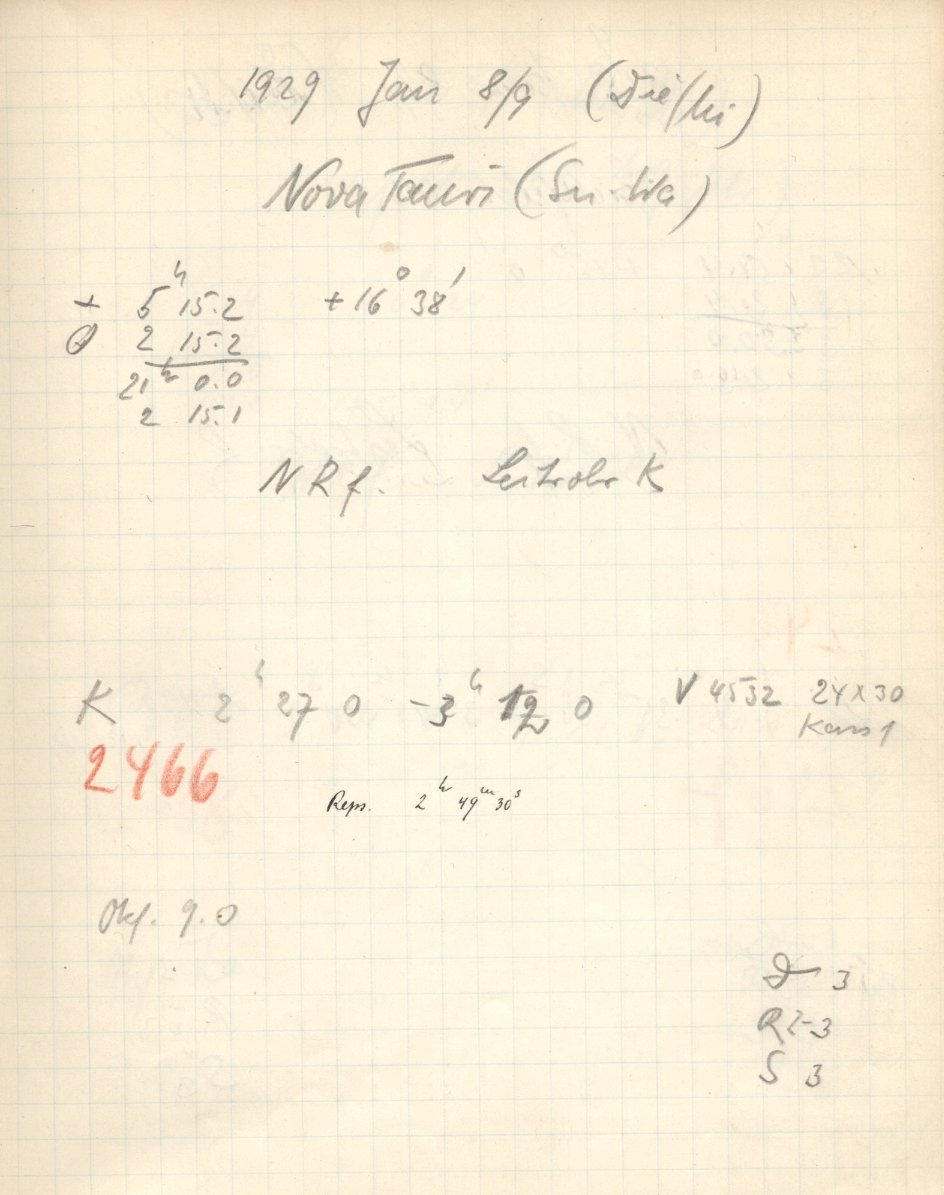 1929 Jan 8/9 (Die/hi)
Nova Tauri (Su
* 5ʰ 15.2 +16° 38'
2 15.2
21ʰ 0.0
2 15.1
N Rf. Leitrohr K
K 2ʰ 27 0 -3ʰ 12 0 V 4532 24x30
2466
Reps. 2ʰ 49ᵐ 30ˢ
Okf. 9.0
D 3
R 2-3
S 3